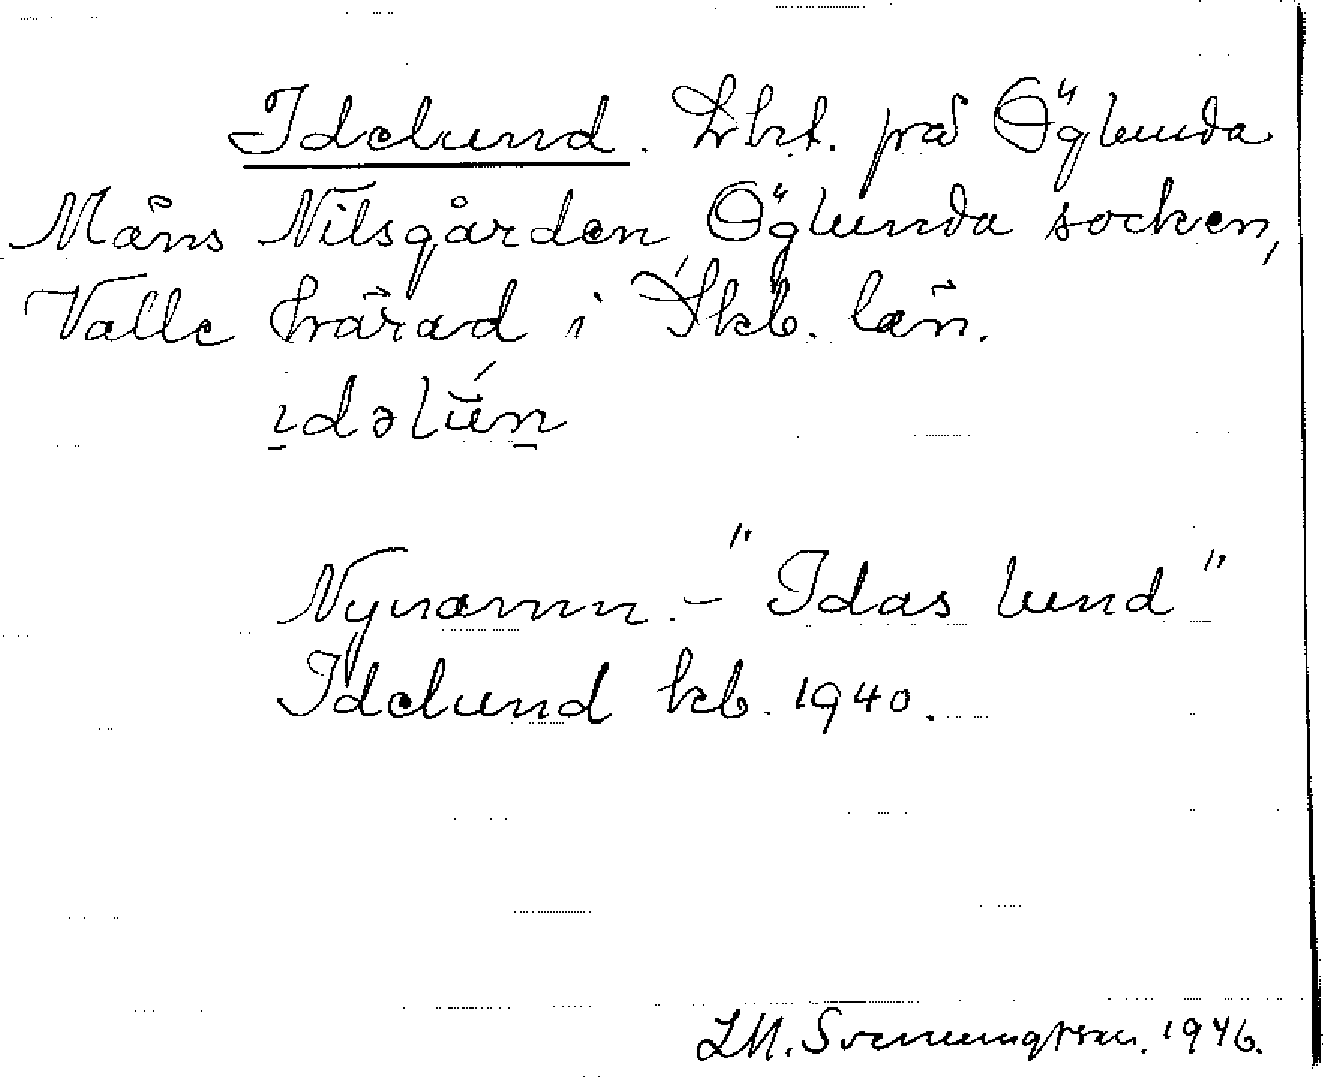 Idelund. Lht. på Öglunda
Måns Nilsgården, Öglunda socken,
Valle härad i Skb. län.
ıdəlún
Nynamn. - "Idas lund"
Idelund kb. 1940.
1946.